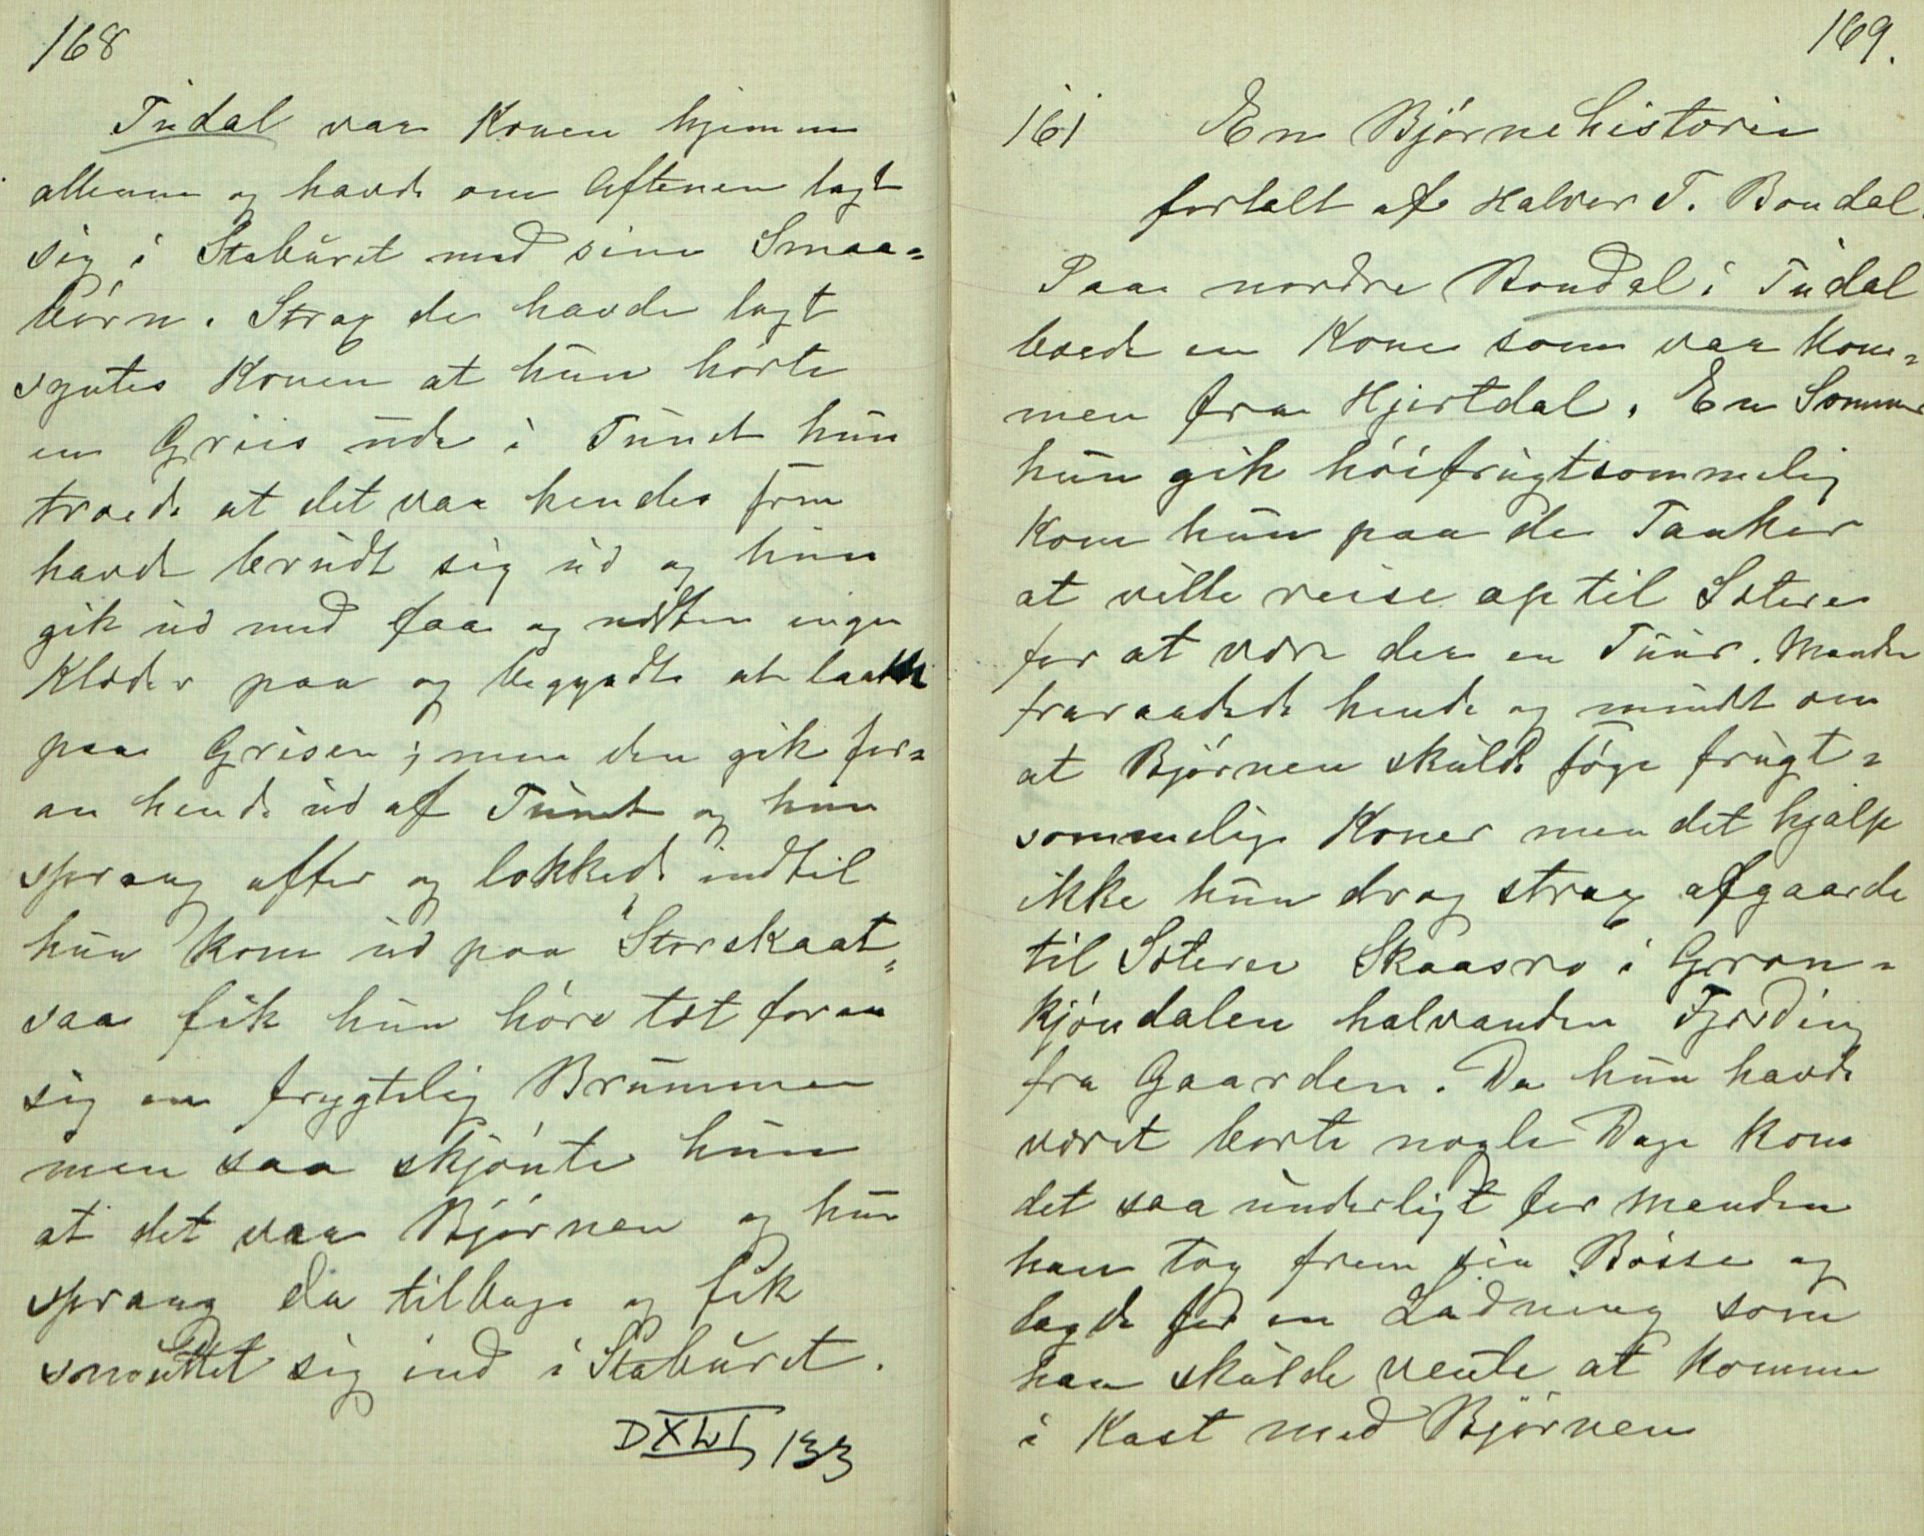 168
Tudal var Konen hjemme
allene og havde om Aftenen lagt
sig i Staburet med sine Smaa=
börn. Strax de havde lagt
syntes Konen at hun hörte
en Griis ude i Tunet hun
troede at det var hendes som
havde brudt sig ud og hun
gik ud med faa og næsten ingen
Klæder paa og begyndte at laakke
paa Grisen; men den gik for=
an hende ud af Tunet og hun
sprang after og lokkede indtil
hun kom ud paa Storskaat=
saa fik hun höre tæt foran
sig en frygtelig Brummen
men saa skjönte hun
at det var Björnen og hun
sprang da tilbage og fik
smuttet sig ind i Staburet.
DXLI, 133
169.
161 En Björnehistorie
fortalt af Halvor T. Bondal.
Paa nordre Bondal i Tudal
boede en Kone som var kom=
men fra Hjertdal. En Sommer
hun gik höifrugtsommelig
kom hun paa de Tanker
at ville reise op til Sæteren
for at være der en Tuur. Manden
fraraadede hende og mindt om
at Björnen skulde föge frugt=
sommelige Koner men det hjalp
ikke hun drog strax afgaarde
til Sæteren Skaasro i Gron=
kjöndalen halvanden Fjerding
fra Gaarden. Da hun havde
været borte nogle Dage kom
det saa underligt for Manden
han tog frem sin Bösse og
lagde for en Ladning som
han skulde vente at komme
i Kast med Björnen